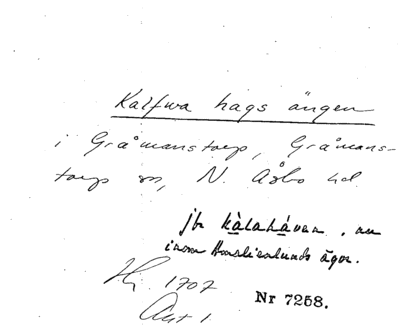 Kalfwa hags ängen
i Gråmanstorp, Gråmans-
torp sn, N. Åsbo hd.
jfr kàlahávan, nu
inom Herrlieslunds ägor.
Hfj. 1707
Nr 7258.